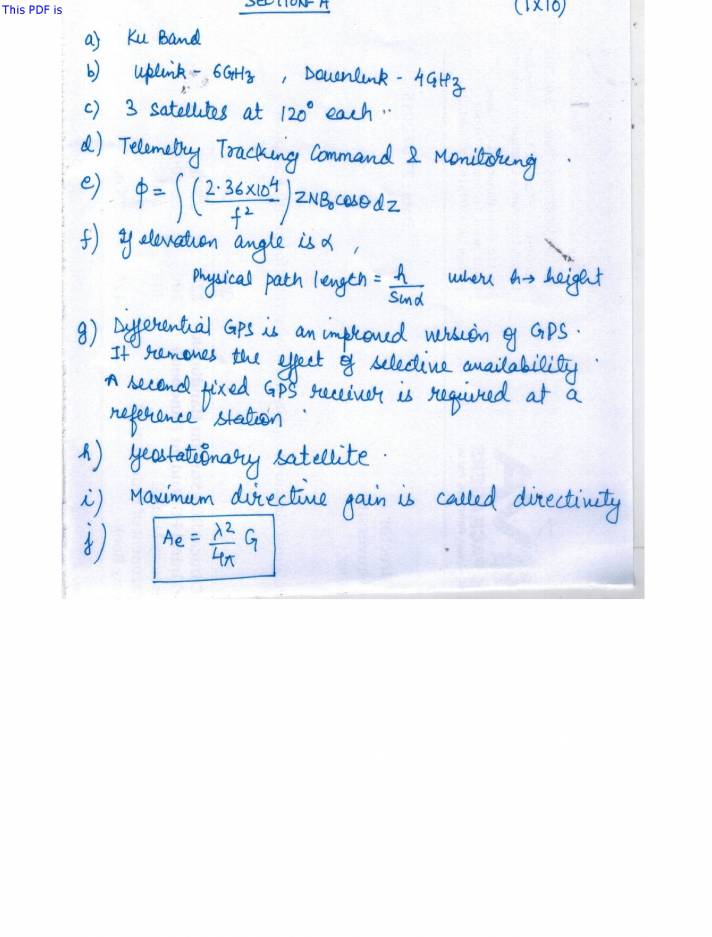 This PDF is
SECTION-A (1X10)
a) Ku Band
b) Uplink - 6GHz , Downlink - 4GHz
c) 3 satellites at 120° each ..
d) Telemetry Tracking Command & Monitoring .
e) ϕ = ∫ (2.36×10⁴/f²) ZNB₀cosθdz
f) If elevation angle is α ,
Physical path length = h/Sinα where h→ height
g) Differential GPS is an improved version of GPS.
It removes the effect of selective availability .
A second fixed GPS receiver is required at a
reference station .
h) Geostationary satellite .
i) Maximum directive gain is called directivity
j) Ae = λ²/4π G